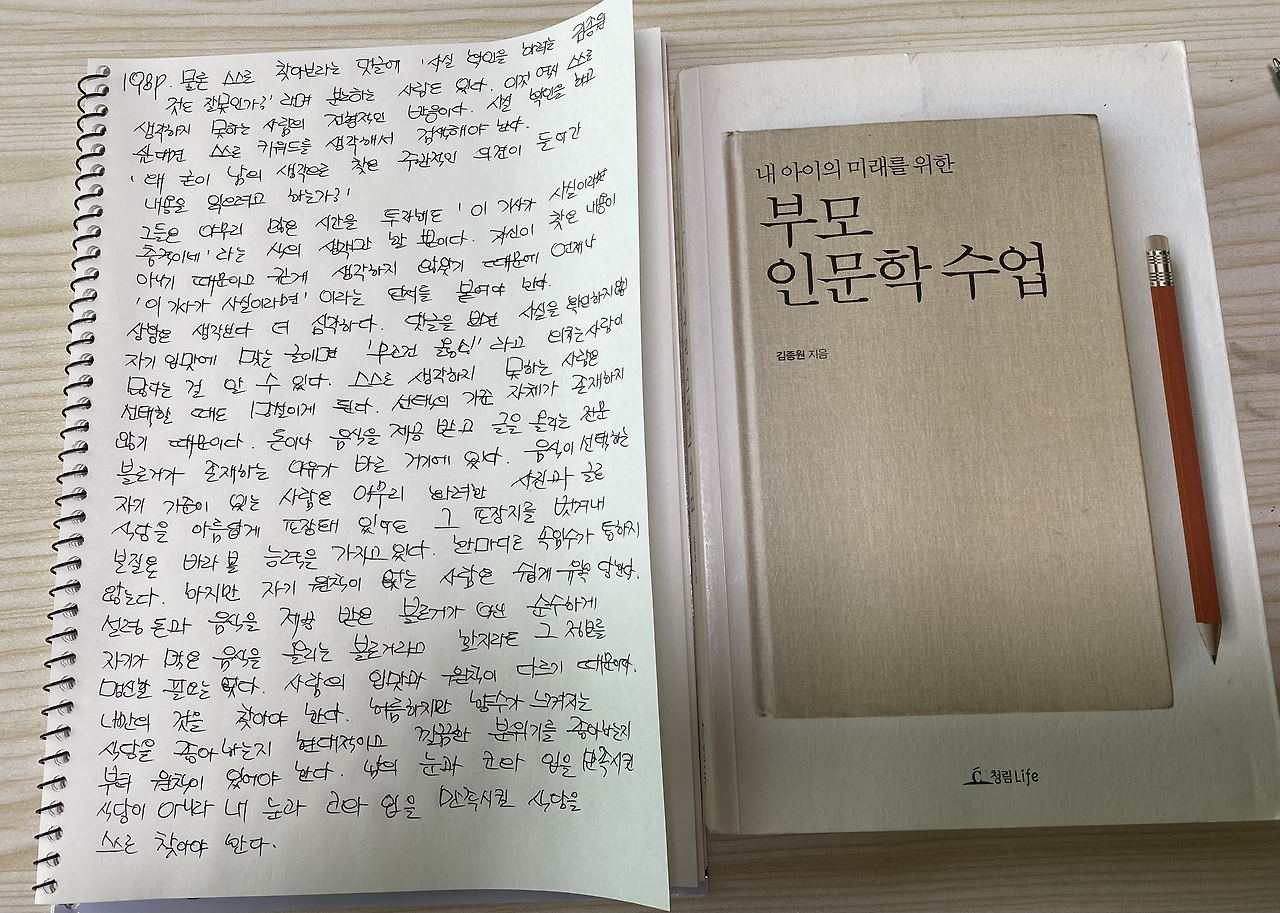 198p. 물론 스스로 찾아보라는 댓글에 '사실 확인을 하려는 김종원
것도 잘못인가?' 라며 분노하는 사람도 있다. 이것 역시 스스로
생각하지 못하는 사람의 전형적인 반응이다. 사실 확인을 하고
싶다면 스스로 키워드를 생각해서 검색해야 한다.
'왜 굳이 남의 생각으로 찾은 주관적인 의견이 들어간
내용을 읽으려고 하는가?'
그들은 아무리 많은 시간을 투자해도 '이 기사가 사실이라면
충격이네' 라는 식의 생각만 할 뿐이다. 자신이 찾은 내용이
아니기 때문이고 깊게 생각하지 않았기 때문에 언제나
'이 기사가 사실이라면' 이라는 단서를 붙여야 한다.
상황은 생각보다 더 심각하다. 댓글을 보면 사실을 확인하지 않
자기 입맛에 맞는 글이면 '무조건 옳소!' 라고 외치는 사람이
많다는 걸 알 수 있다. 스스로 생각하지 못하는 사람은
선택할 때도 망설이게 된다. 선택의 기준 자체가 존재하지
않기 때문이다. 돈이나 음식을 제공 받고 글을 올리는 전문
블로거가 존재하는 이유가 바로 거기에 있다. 음식이 선택하는
자기 기준이 있는 사람은 아무리 화려한 사진과 글로
식당을 아름답게 포장해 있어도 그 포장지를 벗겨내
본질을 바라볼 능력을 가지고 있다. 한마디로 속임수가 통하지
않는다. 하지만 자기 원칙이 없는 사람은 쉽게 유혹 당한다.
설령 돈과 음식을 제공 받은 블로거가 아닌 순수하게
자기가 먹은 음식을 올리는 블로거라고 할지라도 그 정보를
맹신할 필요는 없다. 사람의 입맛과 원칙이 다르기 때문이다.
나만의 것을 찾아야 한다. 허름하지만 향수가 느껴지는
식당을 좋아하는지 현대적이고 깔끔한 분위기를 좋아하는지
부터 원칙이 있어야 한다. 남의 눈과 코와 입을 만족시킨
식당이 아니라 내 눈과 코와 입을 만족시킬 식당을
스스로 찾아야 한다.
내 아이의 미래를 위한
부모
인문학 수업
김종원 지음
청림Life